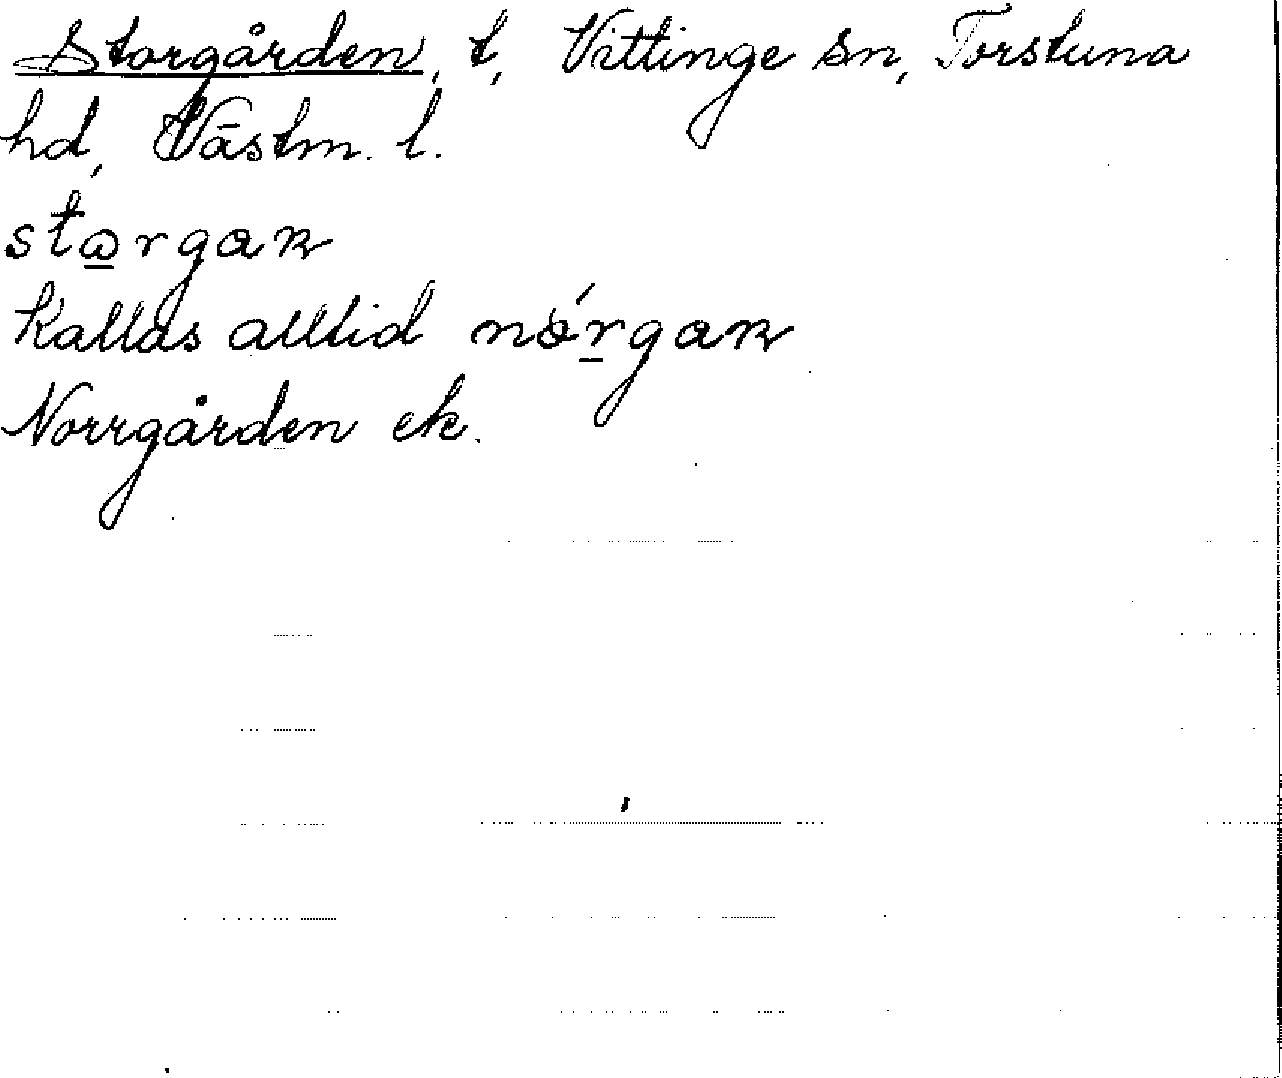 Storgården, t, Vittinge sn, Torstuna
hd, Västm. l.
Kallas alltid
Norrgården ek.